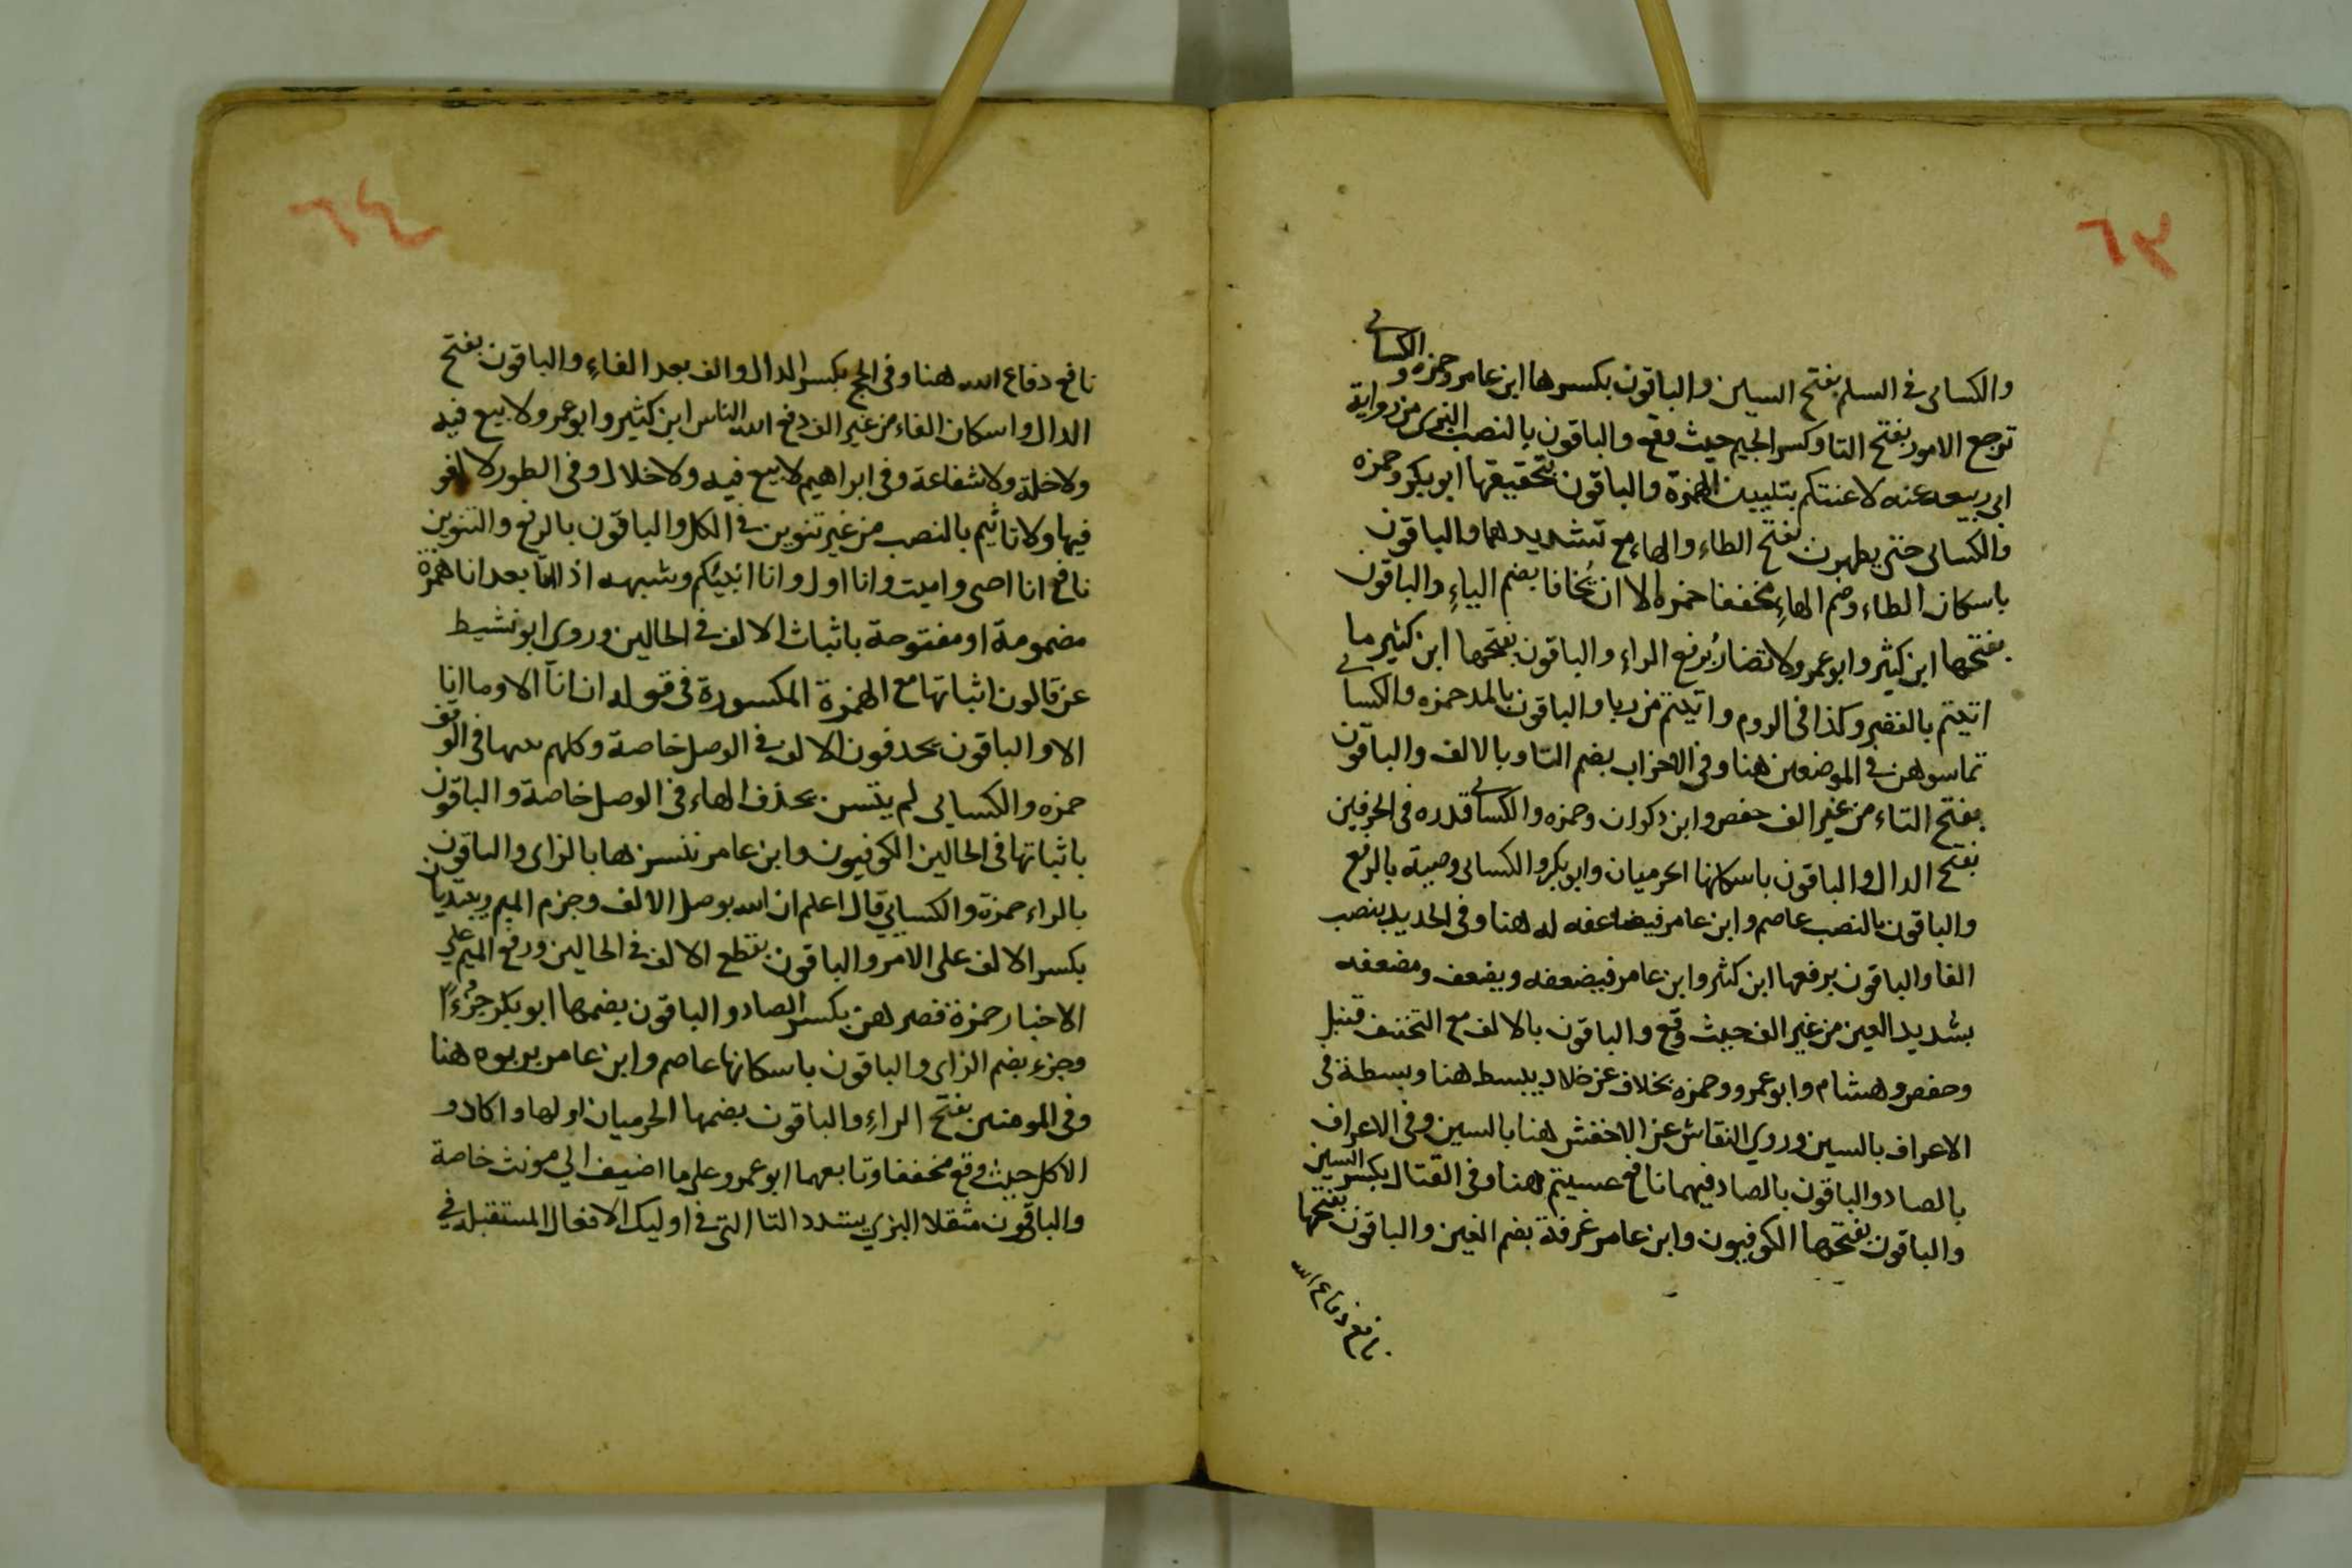 ٦٣
والكسائى فى السلم بفتح السين والباقون بكسرها ابن عامر وحمزه و الكسائى
ترجع الامور بفتح التا وكسر الجيم حيث وقع والباقون بالنصب البزى من رواية
ابى ربيعه عنه لاعنتكم بتليين الهمزة والباقون بتحقيقها ابو بكر وحمزه
والكسائى حتى يطهرن بفتح الطاء والهاء مع تشديدهما والباقون
باسكان الطاء وضم الهاء مخففا حمزه الا ان يُخافا بضم الياءِ والباقون
بفتحها ابن كثير وابو عمرو لا تضارُ برفع الراءِ والباقون بفتحها ابن كثير ما
اتيتم بالقصر وكذا فى الروم واتيتم من ربا والباقون بالمد حمزه والكسائى
تماسوهن فى الموضعين هنا وفى الاحزاب بضم التا وبالالف والباقون
بفتح التاء من غير الف حفص وابن ذكوان وحمزه والكسائى قدره فى الحرفين
بفتح الدال والباقون باسكانها الحرميان وابو بكر والكسائى وصية بالرفع
والباقون بالنصب عاصم وابن عامر فيضاعفه له هنا وفى الحديد بنصب
الفا والباقون برفعها ابن كثير وابن عامر فيضعفه ويضعف ومضعفه
بشديد العين من غير الف حيث وقع والباقون بالالف مع التخفيف قنبل
وحفص وهشام وابو عمرو وحمزه بخلاف عن خلاد يبسط هنا وبسطة فى
الاعراف بالسين وروى النقاش عن الاخفش هنا بالسين وفى الاعراف
بالصاد والباقون بالصاد فيهما نافع عسيتم هنا وفى القتال بكسر السين
والباقون بفتحها الكوفيون وابن عامر غرفة بضم الغين والباقون بفتحها
نافع دفاع الله
٦٤
نافع دفاع الله هنا وفى الحج بكسر الدال والف بعد الفاءِ والباقون بفتح
الدال واسكان الفاء من غير الف دفع الله الناس ابن كثير وابو عمرو لا بيع فيه
ولا خلة ولا شفاعة وفى ابراهيم لا بيع فيه ولا خلال وفى الطور لا لغو
فيها ولا تاثيم بالنصب من غير تنوين فى الكل والباقون بالرفع والتنوين
نافع انا احى واميت وانا اول وانا انبئكم وشبهه اذا اتا بعد انا همزة
مضمومة او مفتوحة باثبات الالف فى الحالين وروى ابو نشيط
عن قالون اثباتها مع الهمزة المكسورة فى قوله ان انآ الا وما انا
الا والباقون بحدفون الالف فى الوصل خاصة وكلهم يثبتها فى الوقف
حمزه والكسايى لم يتسن بحذف الهاء فى الوصل خاصة والباقون
باثباتها فى الحالين الكوفيون وابن عامر ننسزها بالزاى والباقون
بالراء حمزة والكسايي قال اعلم ان الله بوصل الالف وجزم الميم ويبتديان
بكسر الالف على الامر والباقون بقطع الالف فى الحالين ورفع الميم على
الاخبار حمزة فصرهن بكسر الصاد والباقون بضمها ابو بكر جُزُءًا
وجزء بضم الزاى والباقون باسكانها عاصم وابن عامر بربوه هنا
وفى المومنين بفتح الراءِ والباقون بضمها الحرميان اولها واكاد و
الاكل حيث وقع مخففا وتابعهما ابو عمرو على ما اضيف الى مونث خاصة
والباقون مثقلا البزي يشدد التا التى فى اوليك الافعال المستقبلة فى